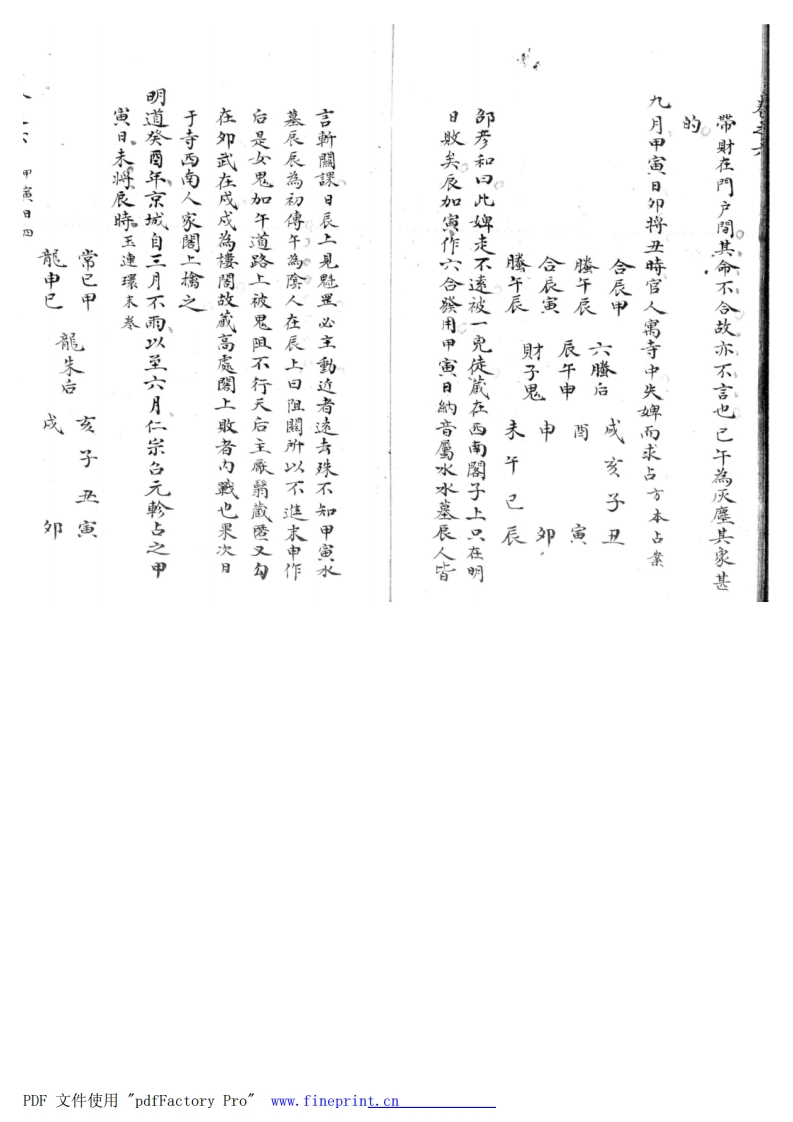 卷之六
帶財在門戶間其命不合故亦不言也已午為灰塵其家甚
的
九月甲寅日卯將丑時官人寓寺中失婢而求占方本占案
合辰甲 六螣后 戌亥子丑
螣午辰 辰午申 酉 寅
合辰寅 財子鬼 申 卯
螣午辰 未午巳辰
邵彥和曰此婢走不遠被一兇徒藏在西南閣子上只在明
日敗矣辰加寅作六合發用甲寅日納音屬水水墓辰人皆
言斬關課日辰上見魁罡必主動近者遠去殊不知甲寅水
墓辰辰為初傳午為陰人在辰上曰阻關所以不進末申作
后是女鬼加午道路上被鬼阻不行天后主厭翳藏匿又勾
在卯武在戌戌為樓閣故藏高處閣上敗者內戰也果次日
于寺西南人家閣上擒之
明道癸酉年京城自三月不雨以至六月仁宗召元軫占之甲
寅日未將辰時玉連環末卷
甲寅日四
常巳甲 龍朱后 亥子丑寅
龍申巳 戌 卯
PDF 文件使用 "pdfFactory Pro" www.fineprint.cn